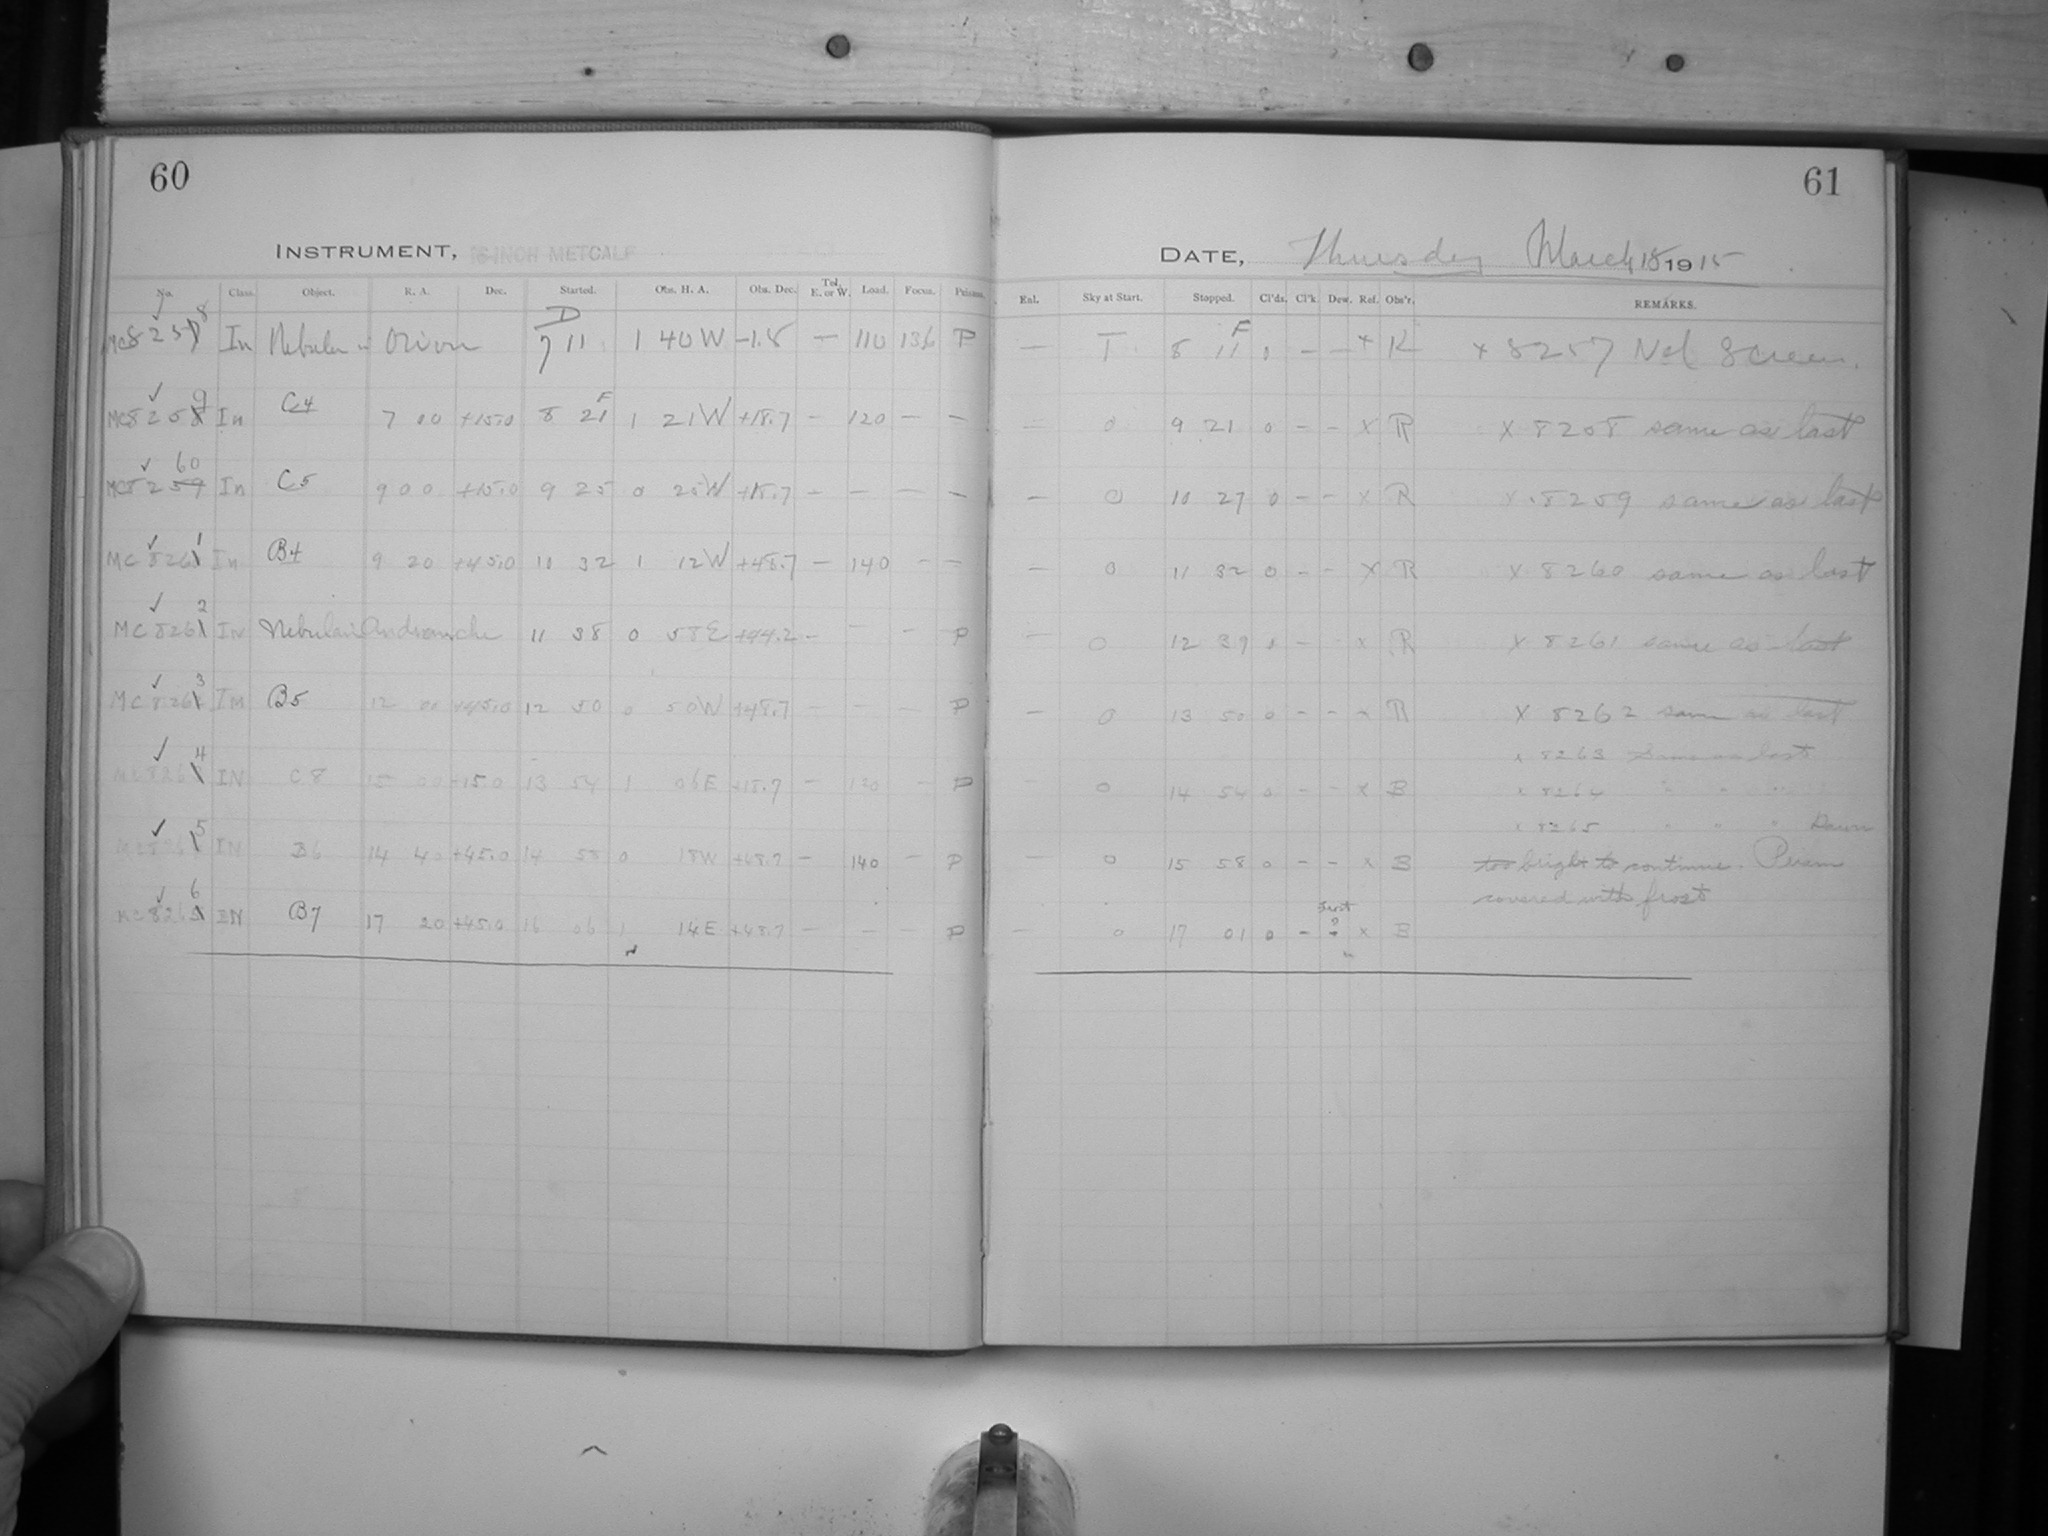 60
INSTRUMENT, 16-INCH METCALF
No. Class. Object. R. A. Dec. Started. Obs. H. A. Obs. Dec. Tel. E. or W. Load. Focus. Prisms.
D
MC8257 8 In Nebula in Orion 7 11 1 40 W -1.8 — 110 136 P
MC8258 9 In C4 7 00 +15.0 8 21 F 1 21 W +18.7 - 120 - -
MC8259 60 In C5 9 00 +15.0 9 25 0 25 W +18.7 - - - -
MC 826 1 In B4 9 20 +45.0 10 32 1 12 W +48.7 - 140 - -
MC 8261 2 IN Nebula in 11 38 0 58 E +44.2 - - - P
MC 8262 3 IN B5 12 00 +45.0 12 50 0 50 W +48.7 - - - P
4 IN C8 15 00 +15.0 13 54 1 06 E +18.7 - 120 - P
5 IN B6 14 40 +45.0 14 58 0 18 W +48.7 - 140 - P
MC 826 6 IN B7 17 20 +45.0 16 06 1 14 E +48.7 - - - P
61
DATE, Thursday March 18 1915
Enl. Sky at Start. Stopped. Cl'ds. Cl'k. Dew. Ref. Obs'r. REMARKS.
— T 8 11 F 0 - - x R x 8257 Nel Screen.
— 0 9 21 0 - - x R x 8258 same as last
— 0 10 27 0 - - x R x 8259 same as last
— 0 11 32 0 - - x R x 8260 same as last
— 0 12 39 0 - - x R x 8261 same as last
— 0 13 50 0 - - - R x 8262 same as last
x 8263 Same as last
0 14 54 0 - - x B x 8264 " " "
x 8265 " " " Dawn
— 0 15 58 0 - - x B too bright to continue. Prism
covered with frost
— 0 17 01 0 - frost ? x B